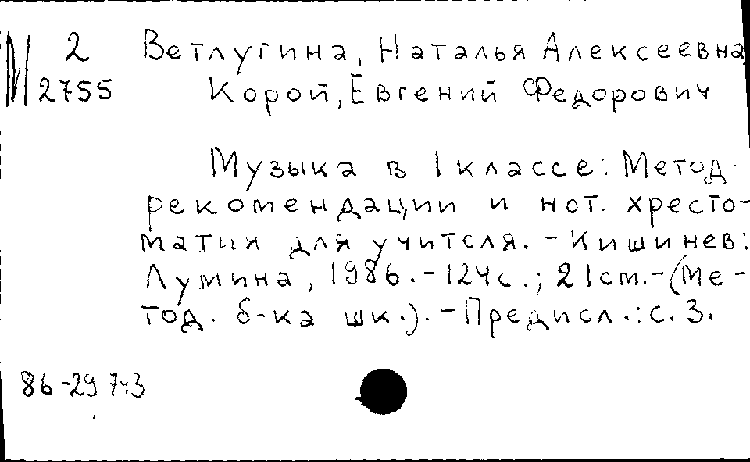 М 2 Ветлугина, Наталья Алексеевна
2755 Корой, Евгений Федорович
Музыка в 1 классе: Метод.
рекомендации и нот. хресто-
матия для учителя. - Кишинев:
Лумина, 1986. - 124 с.; 21 см. - (Ме-
тод. б-ка шк.). - Предисл.: с. 3.